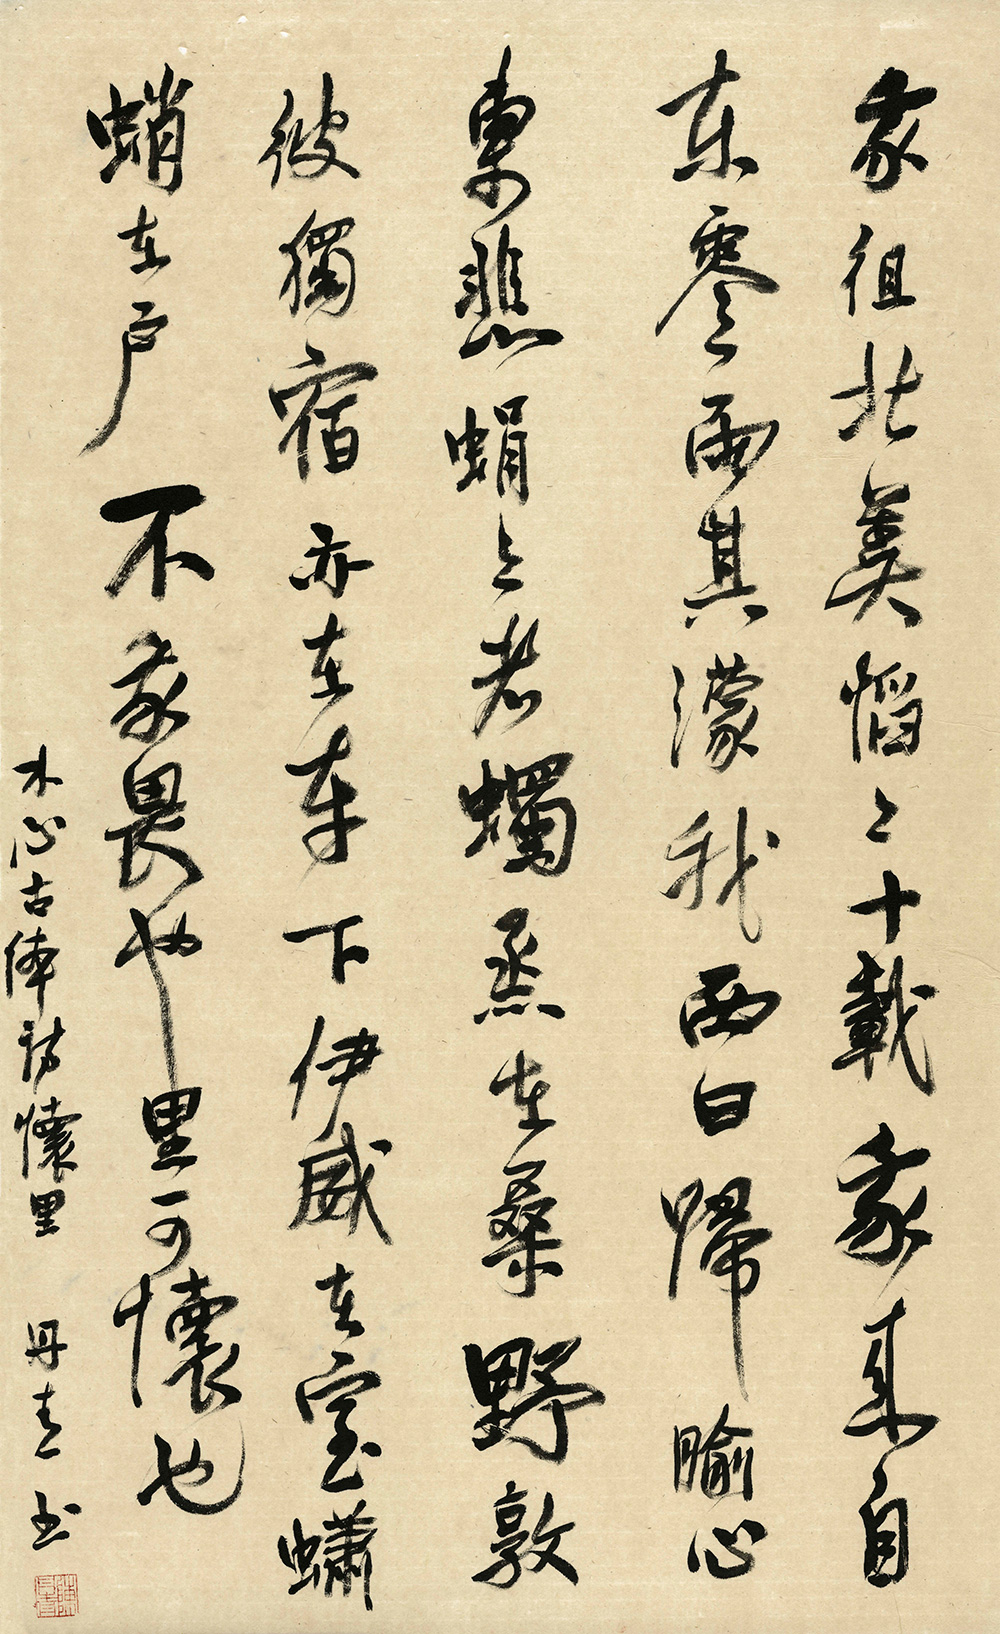 徂北美慆々十載 来自
东零雨其濛我西曰歸 心
東悲蜎々者蠋烝在桑野敦
彼獨宿亦在车下伊威在室蠨
蛸在户不 畏也里可懷也
木心古体詩懷里 丹青书